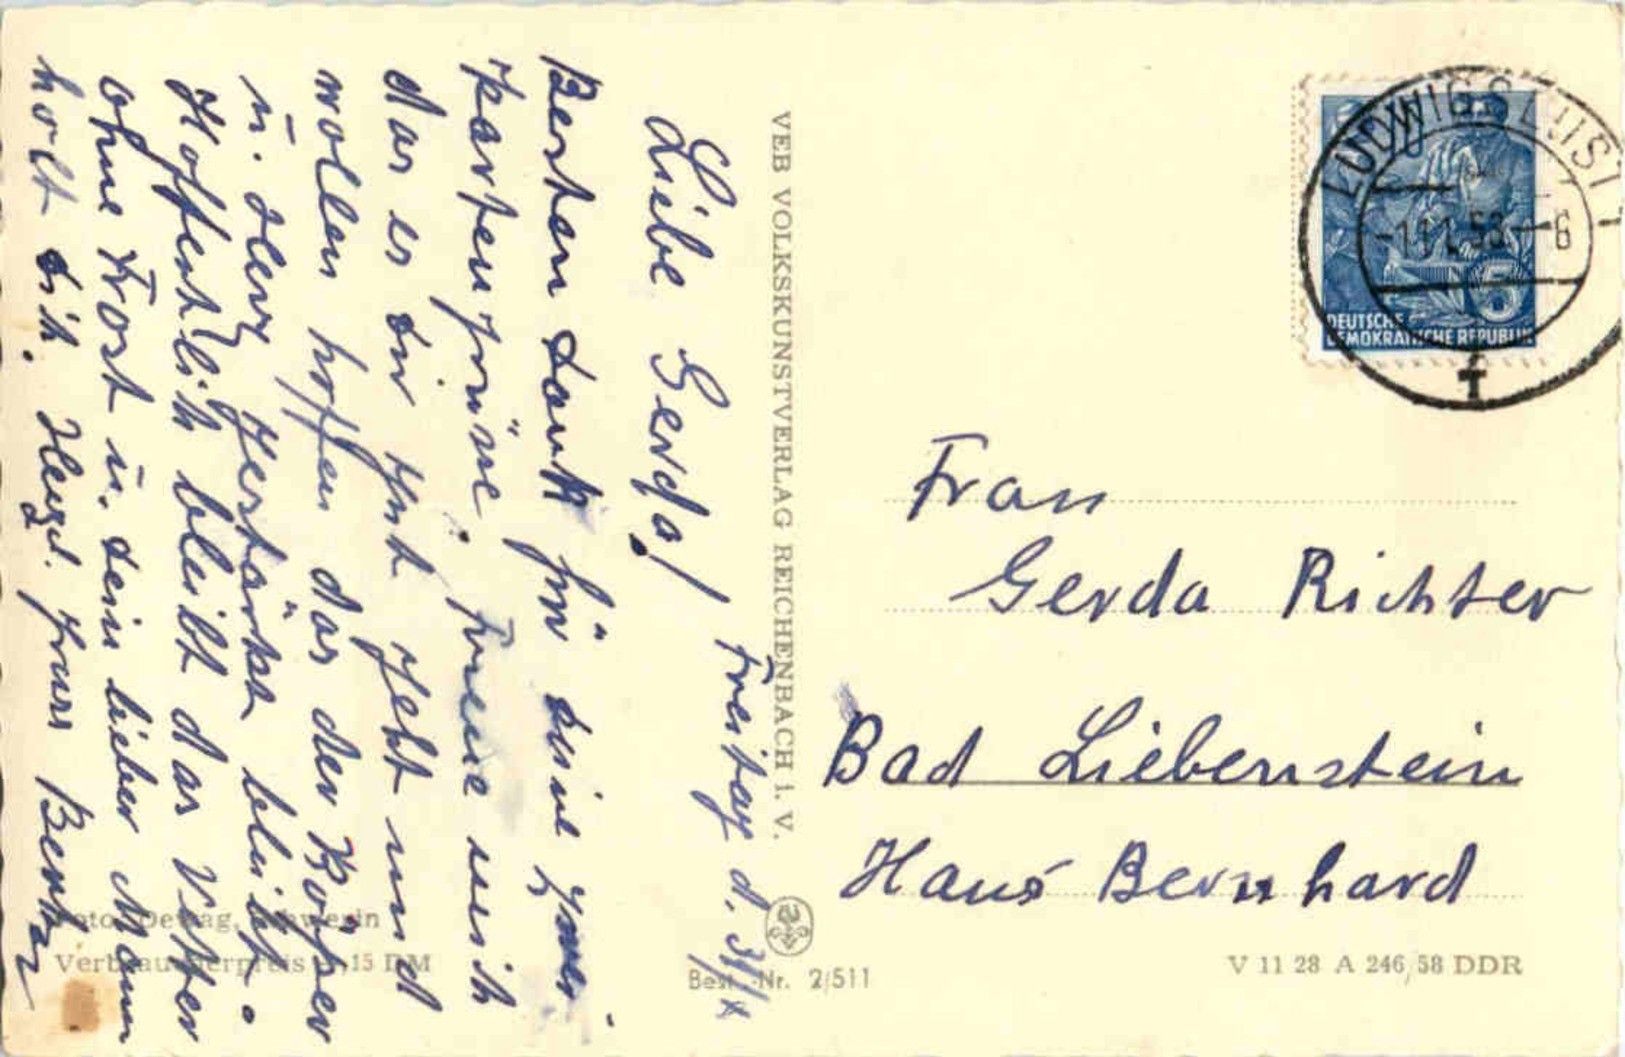 Freitag d. 31/X
Liebe Gerda!
Besten Dank für deine zwei
Kartengrüße. Freue mich
das es dir gut geht und
wollen hoffen das der Körper
u. Herz gestärkt bleibt.
Hoffentlich bleibt das Wetter
ohne Frost u. dein lieber Mann
holt dich. Herzl. Gruss
VEB VOLKSKUNSTVERLAG REICHENBACH I. V.
Foto: Dewag, Schwerin
Verbraucherpreis -,15 DM
Best.-Nr. 2/511
LUDWIGSLUST 1
-1.11.58 -6
f
5
DEUTSCHE
DEMOKRATISCHE REPUBLIK
Frau
Gerda Richter
Bad Liebenstein
Haus Bernhard
V 11 28 A 246/58 DDR